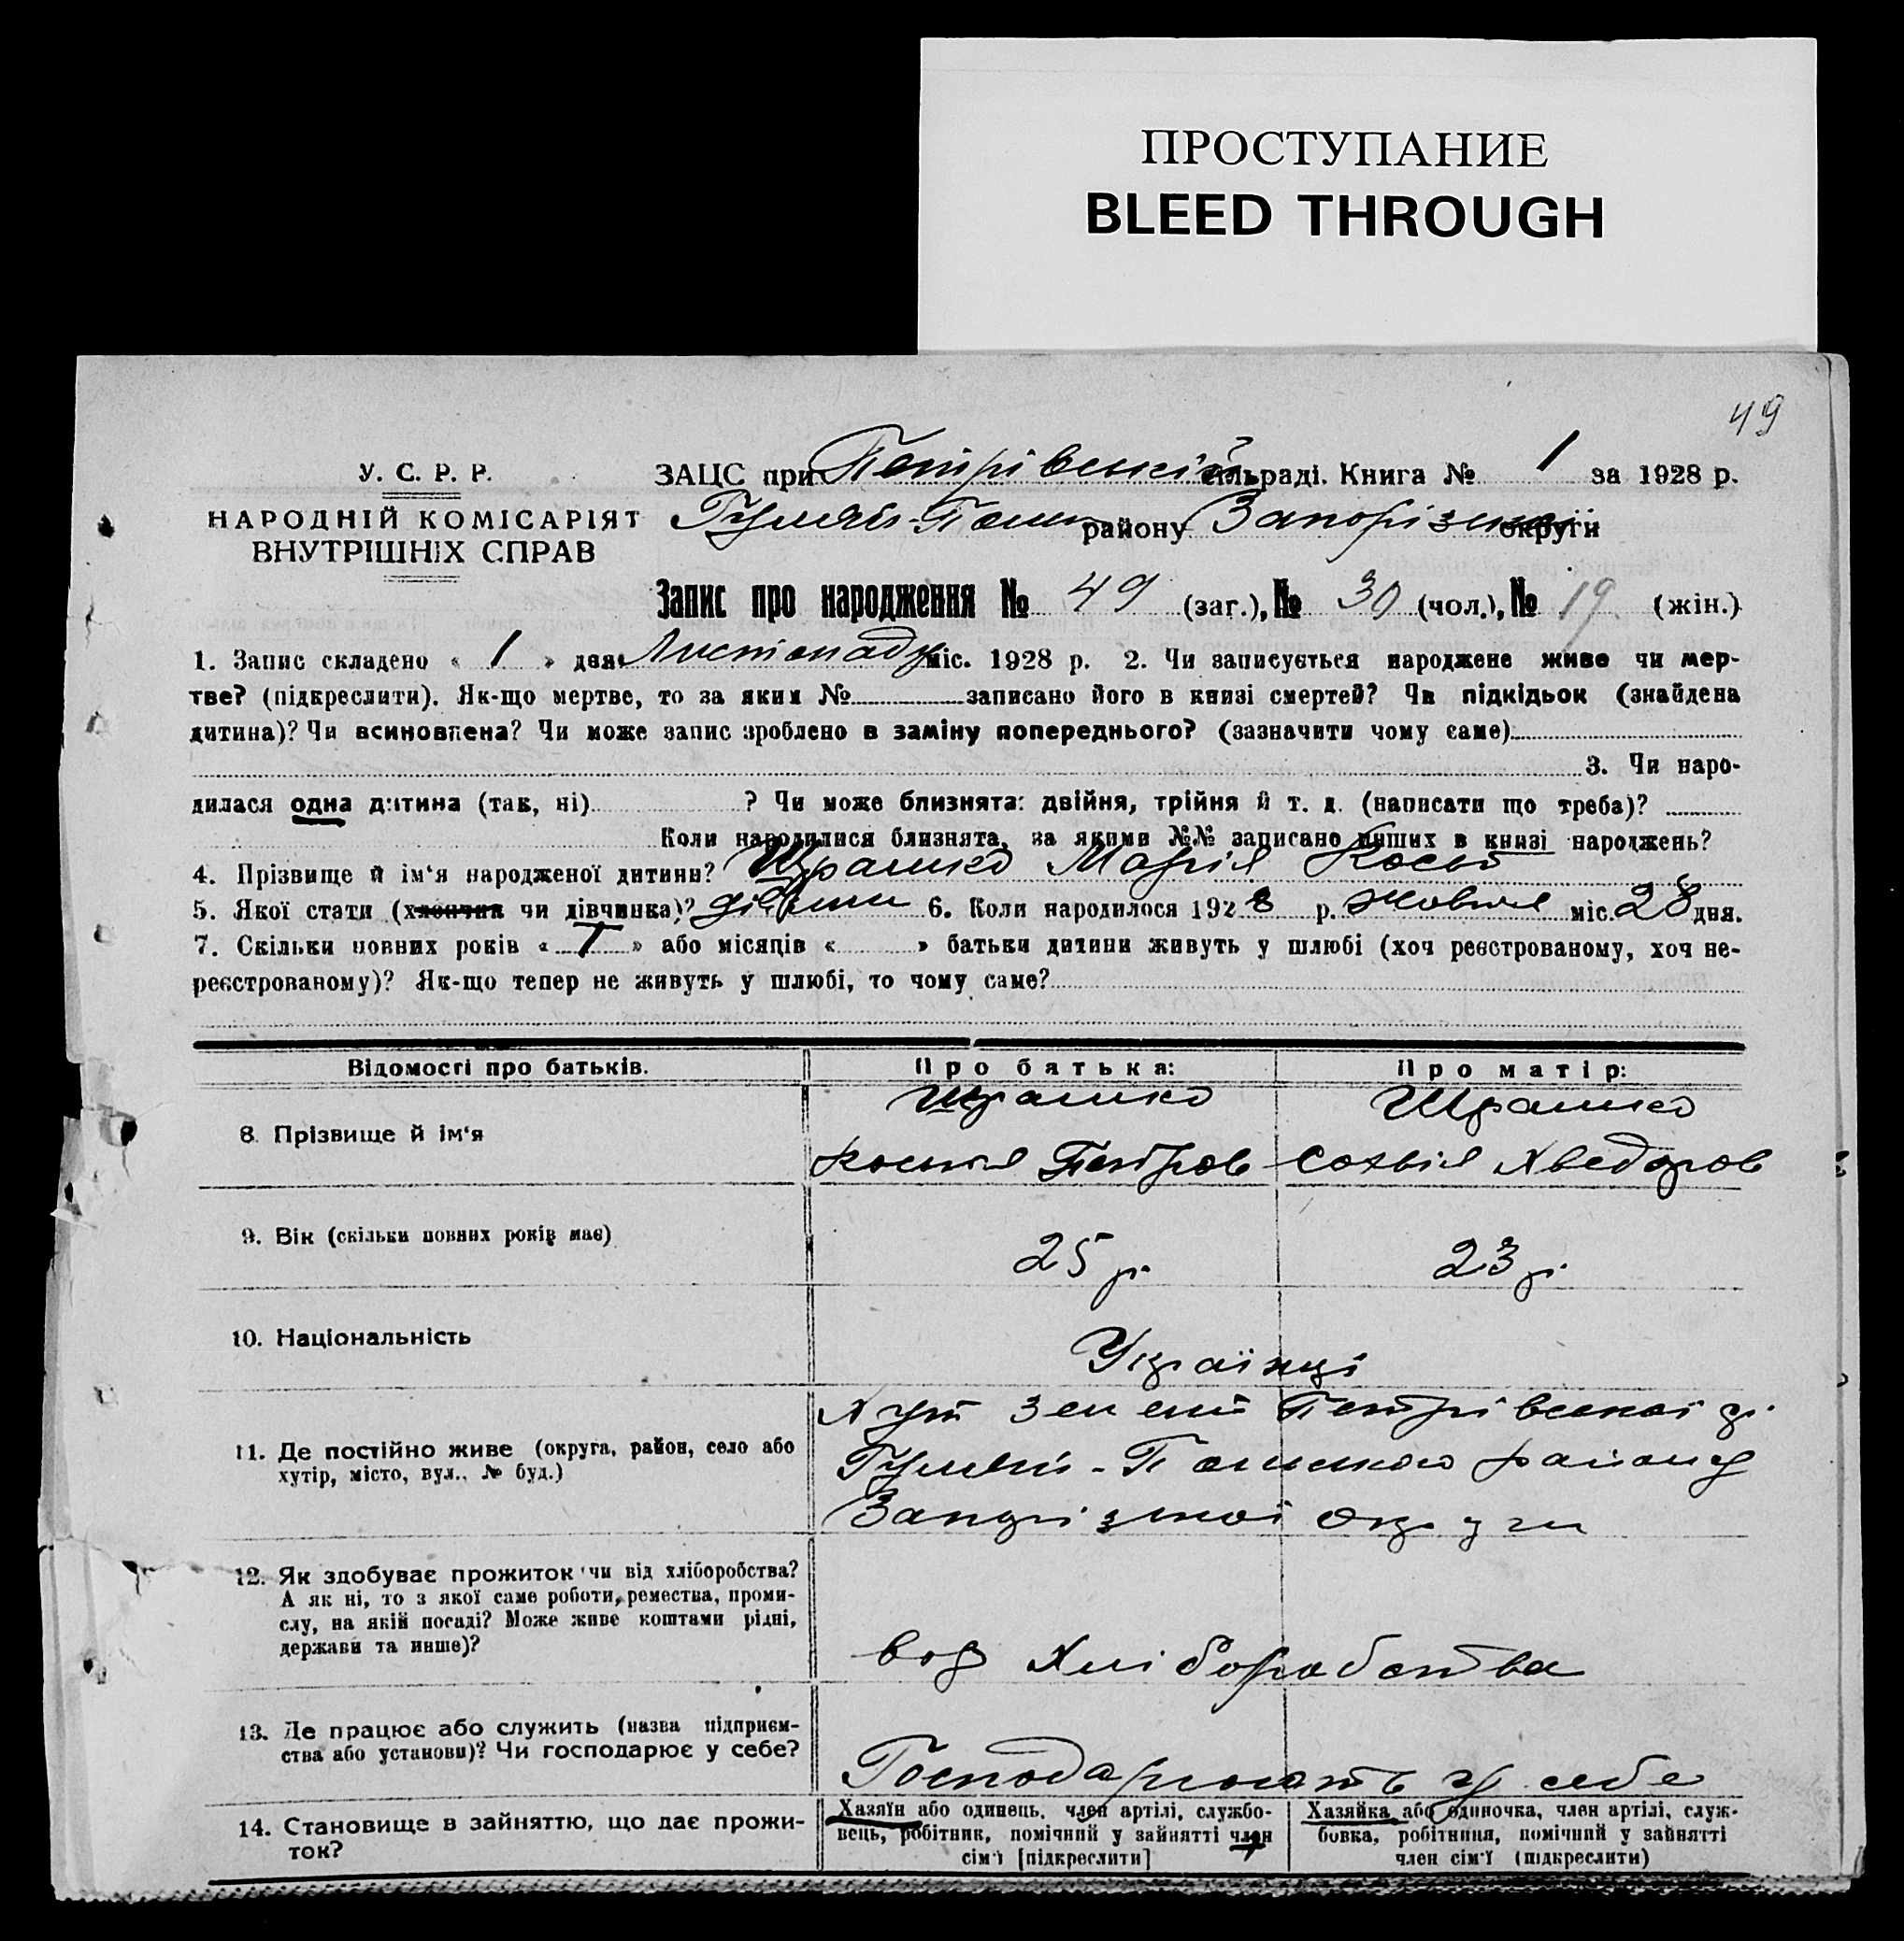 ПРОСТУПАНИЕ
BLEED THROUGH
49
У. С. Р. Р.
НАРОДНІЙ КОМІСАРІЯТ
ВНУТРІШНІХ СПРАВ
ЗАЦС при Петрівській сільраді. Книга № 1 за 1928 р.
Гуляй-Поль району Запорізької округи
Запис про народження № 49 (заг.), № 30 (чол.), № 19 (жін.)
1. Запис складено « 1 » дня Листопаду міс. 1928 р. 2. Чи записується народжене живе чи мер-
тве? (підкреслити). Як-що мертве, то за яким № записано його в книзі смертей? Чи підкідьок (знайдена
дитина)? Чи всиновлена? Чи може запис зроблено в заміну попереднього? (зазначити чому саме)
3. Чи наро-
дилася одна дитина (так, ні) ? Чи може близнята: двійня, трійня й т. д. (написати що треба)?
Коли народилися близнята, за якими №№ записано инших в книзі народжень?
4. Прізвище й ім'я народженої дитини? Марія
5. Якої стати (хлопчик чи дівчинка)? 6. Коли народилося 1928 р. Жовтня міс. 28 дня.
7. Скільки повних років « 1 » або місяців « » батьки дитини живуть у шлюбі (хоч реєстрованому, хоч не-
реєстрованому)? Як-що тепер не живуть у шлюбі, то чому саме?
Відомості про батьків.
Про батька:
Про матір:
8. Прізвище й ім'я
Петров
Хведоров
9. Вік (скільки повних років має)
25 р.
23 р.
10. Національність
Українці
11. Де постійно живе (округа, район, село або
хутір, місто, вул., № буд.)
Хут Петрівської
Гуляй-Польського району
Запорізької округи
12. Як здобуває прожиток чи від хліборобства?
А як ні, то з якої саме роботи, ремества, проми-
слу, на якій посаді? Може живе коштами рідні,
держави та инше)?
вод Хліборобства
13. Де працює або служить (назва підприєм-
ства або установи)? Чи господарює у себе?
Господарюють у себе
14. Становище в зайняттю, що дає прожи-
ток?
Хазяїн або одинець, член артілі, службо-
вець, робітник, помічний у зайнятті член
сім'ї [підкреслити]
Хазяйка або одиночка, член артілі, служ-
бовка, робітниця, помічний у зайнятті
член сім'ї (підкреслити)